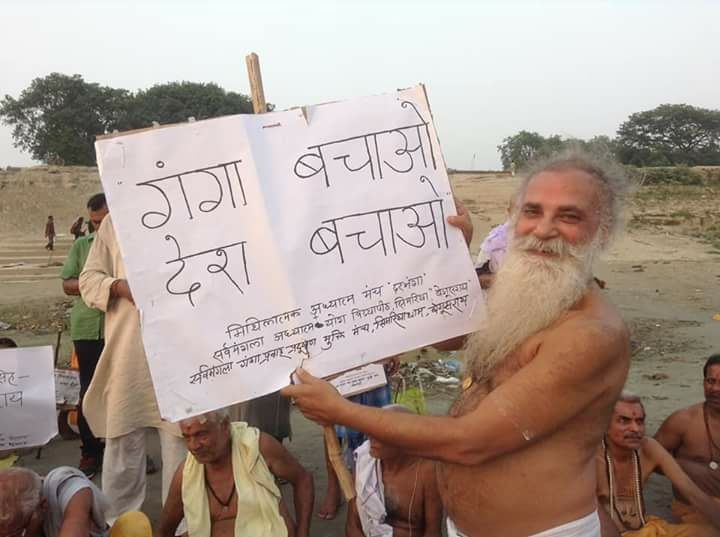 गंगा बचाओ
देश बचाओ
मिथिलात्मक अध्यात्म मंच "दरभंगा"
सर्वमंगला अध्यात्म योग विद्यापीठ, सिमरिया "बेगूसराय"
सर्वमंगला गंगा प्रदूषण मुक्ति मंच, सिमरिया धाम, बेगूसराय